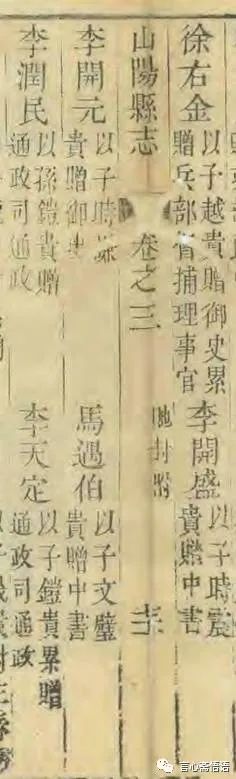 徐右金 以子越貴贈御史累
贈兵部督捕理事官
李開盛 以子時震
貴贈中書
山陽縣志 卷之三 馳封附
李開元 以子時
貴贈御史
馬遇伯 以子文璧
貴贈中書
李潤民 以孫鎧貴贈
通政司通政
李天定 以子鎧貴累贈
通政司通政
言心斋悟语